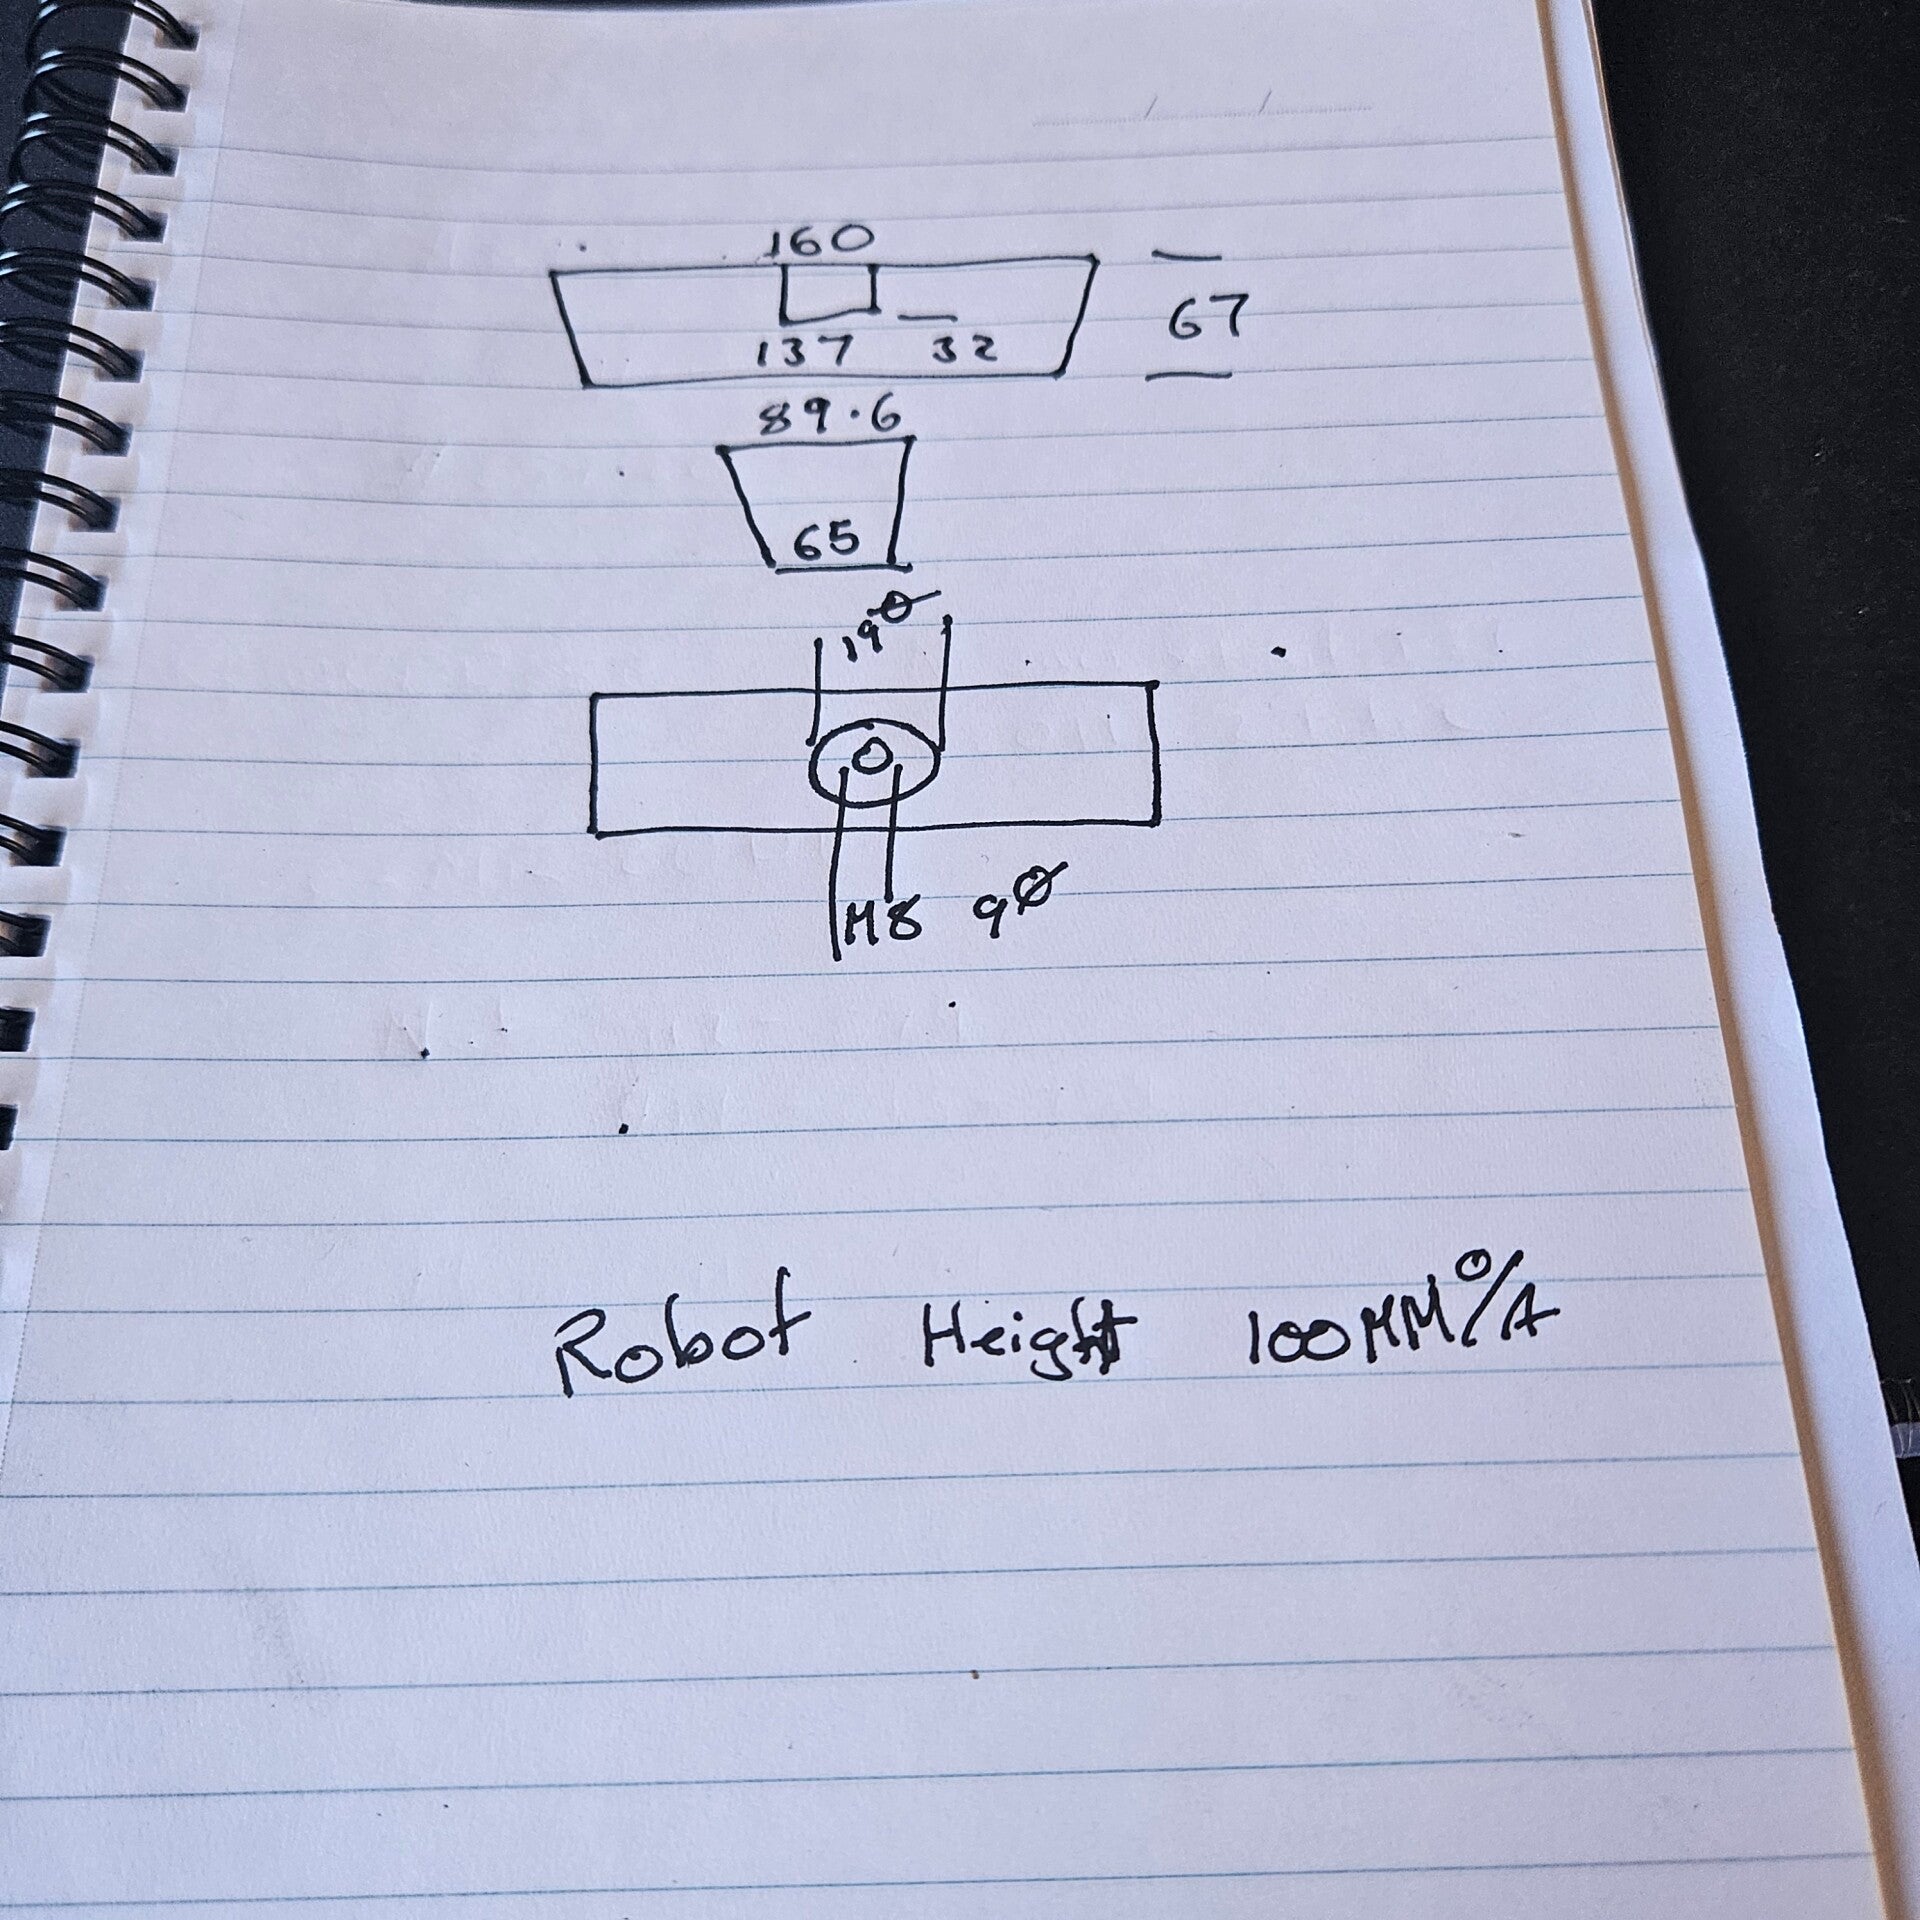 160
67
137 32
89.6
65
19Ø
M8 9Ø
Robot Height 100MM O/A